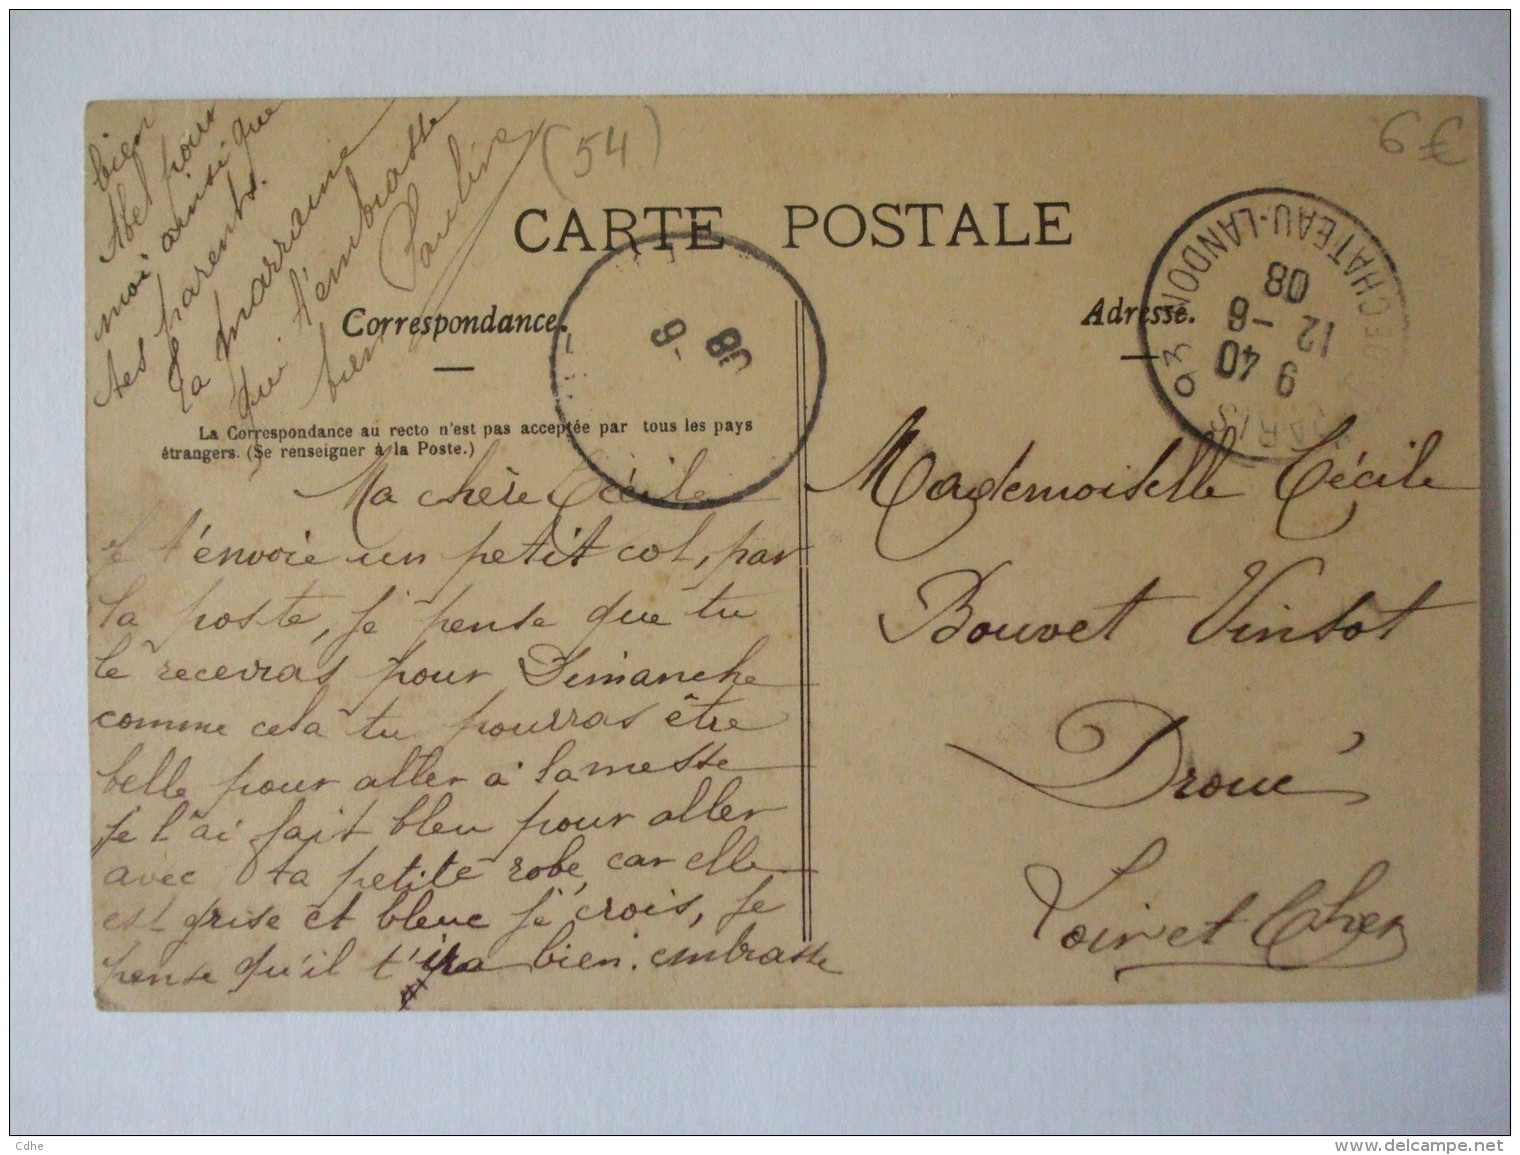 (54)
6F
CARTE POSTALE
Correspondance.
Adresse.
La Correspondance au recto n'est pas acceptée par tous les pays
étrangers. (Se renseigner à la Poste.)
93 RUE DU CHATEAU-LANDON
PARIS
9 40
12 -6
08
08
6-
Ma chère Cécile
Je t'envoie un petit col, par
la poste, je pense que tu
le recevras pour Dimanche
comme cela tu pourras être
belle pour aller à la messe
je l'ai fait bleu pour aller
avec ta petite robe, car elle
est grise et bleue je crois, je
pense qu'il t'ira bien. embrasse
bien
Abel pour
moi ainsi que
tes parents.
Ta marraine
qui t'embrasse
bien
Pauline
Mademoiselle Cécile
Bouvet Vinsot
Droué
Loir et Cher
Cdhe
www.delcampe.net